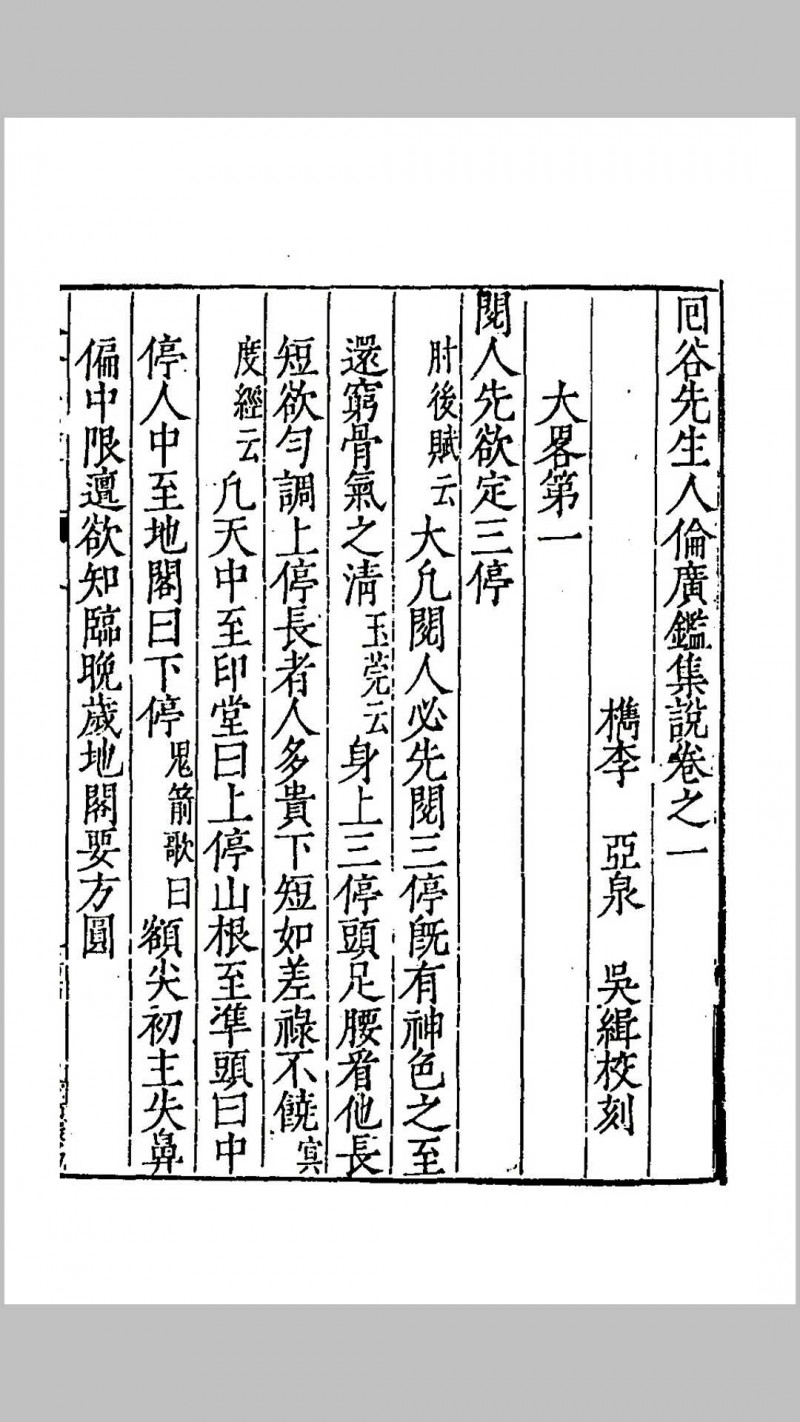 囘谷先生人倫廣鑑集說卷之一
檇李 亞泉 吳緝校刻
大畧第一
閱人先欲定三停
肘後賦云大凢閱人必先閱三停旣有神色之至
還窮骨氣之淸玉莞云身上三停頭足腰看他長
短欲勻調上停長者人多貴下短如差祿不饒寘
度經云凢天中至印堂曰上停山根至準頭曰中
停人中至地閣曰下停鬼箭歌曰額尖初主失鼻
偏中限邅欲知臨晩歲地閣要方圓